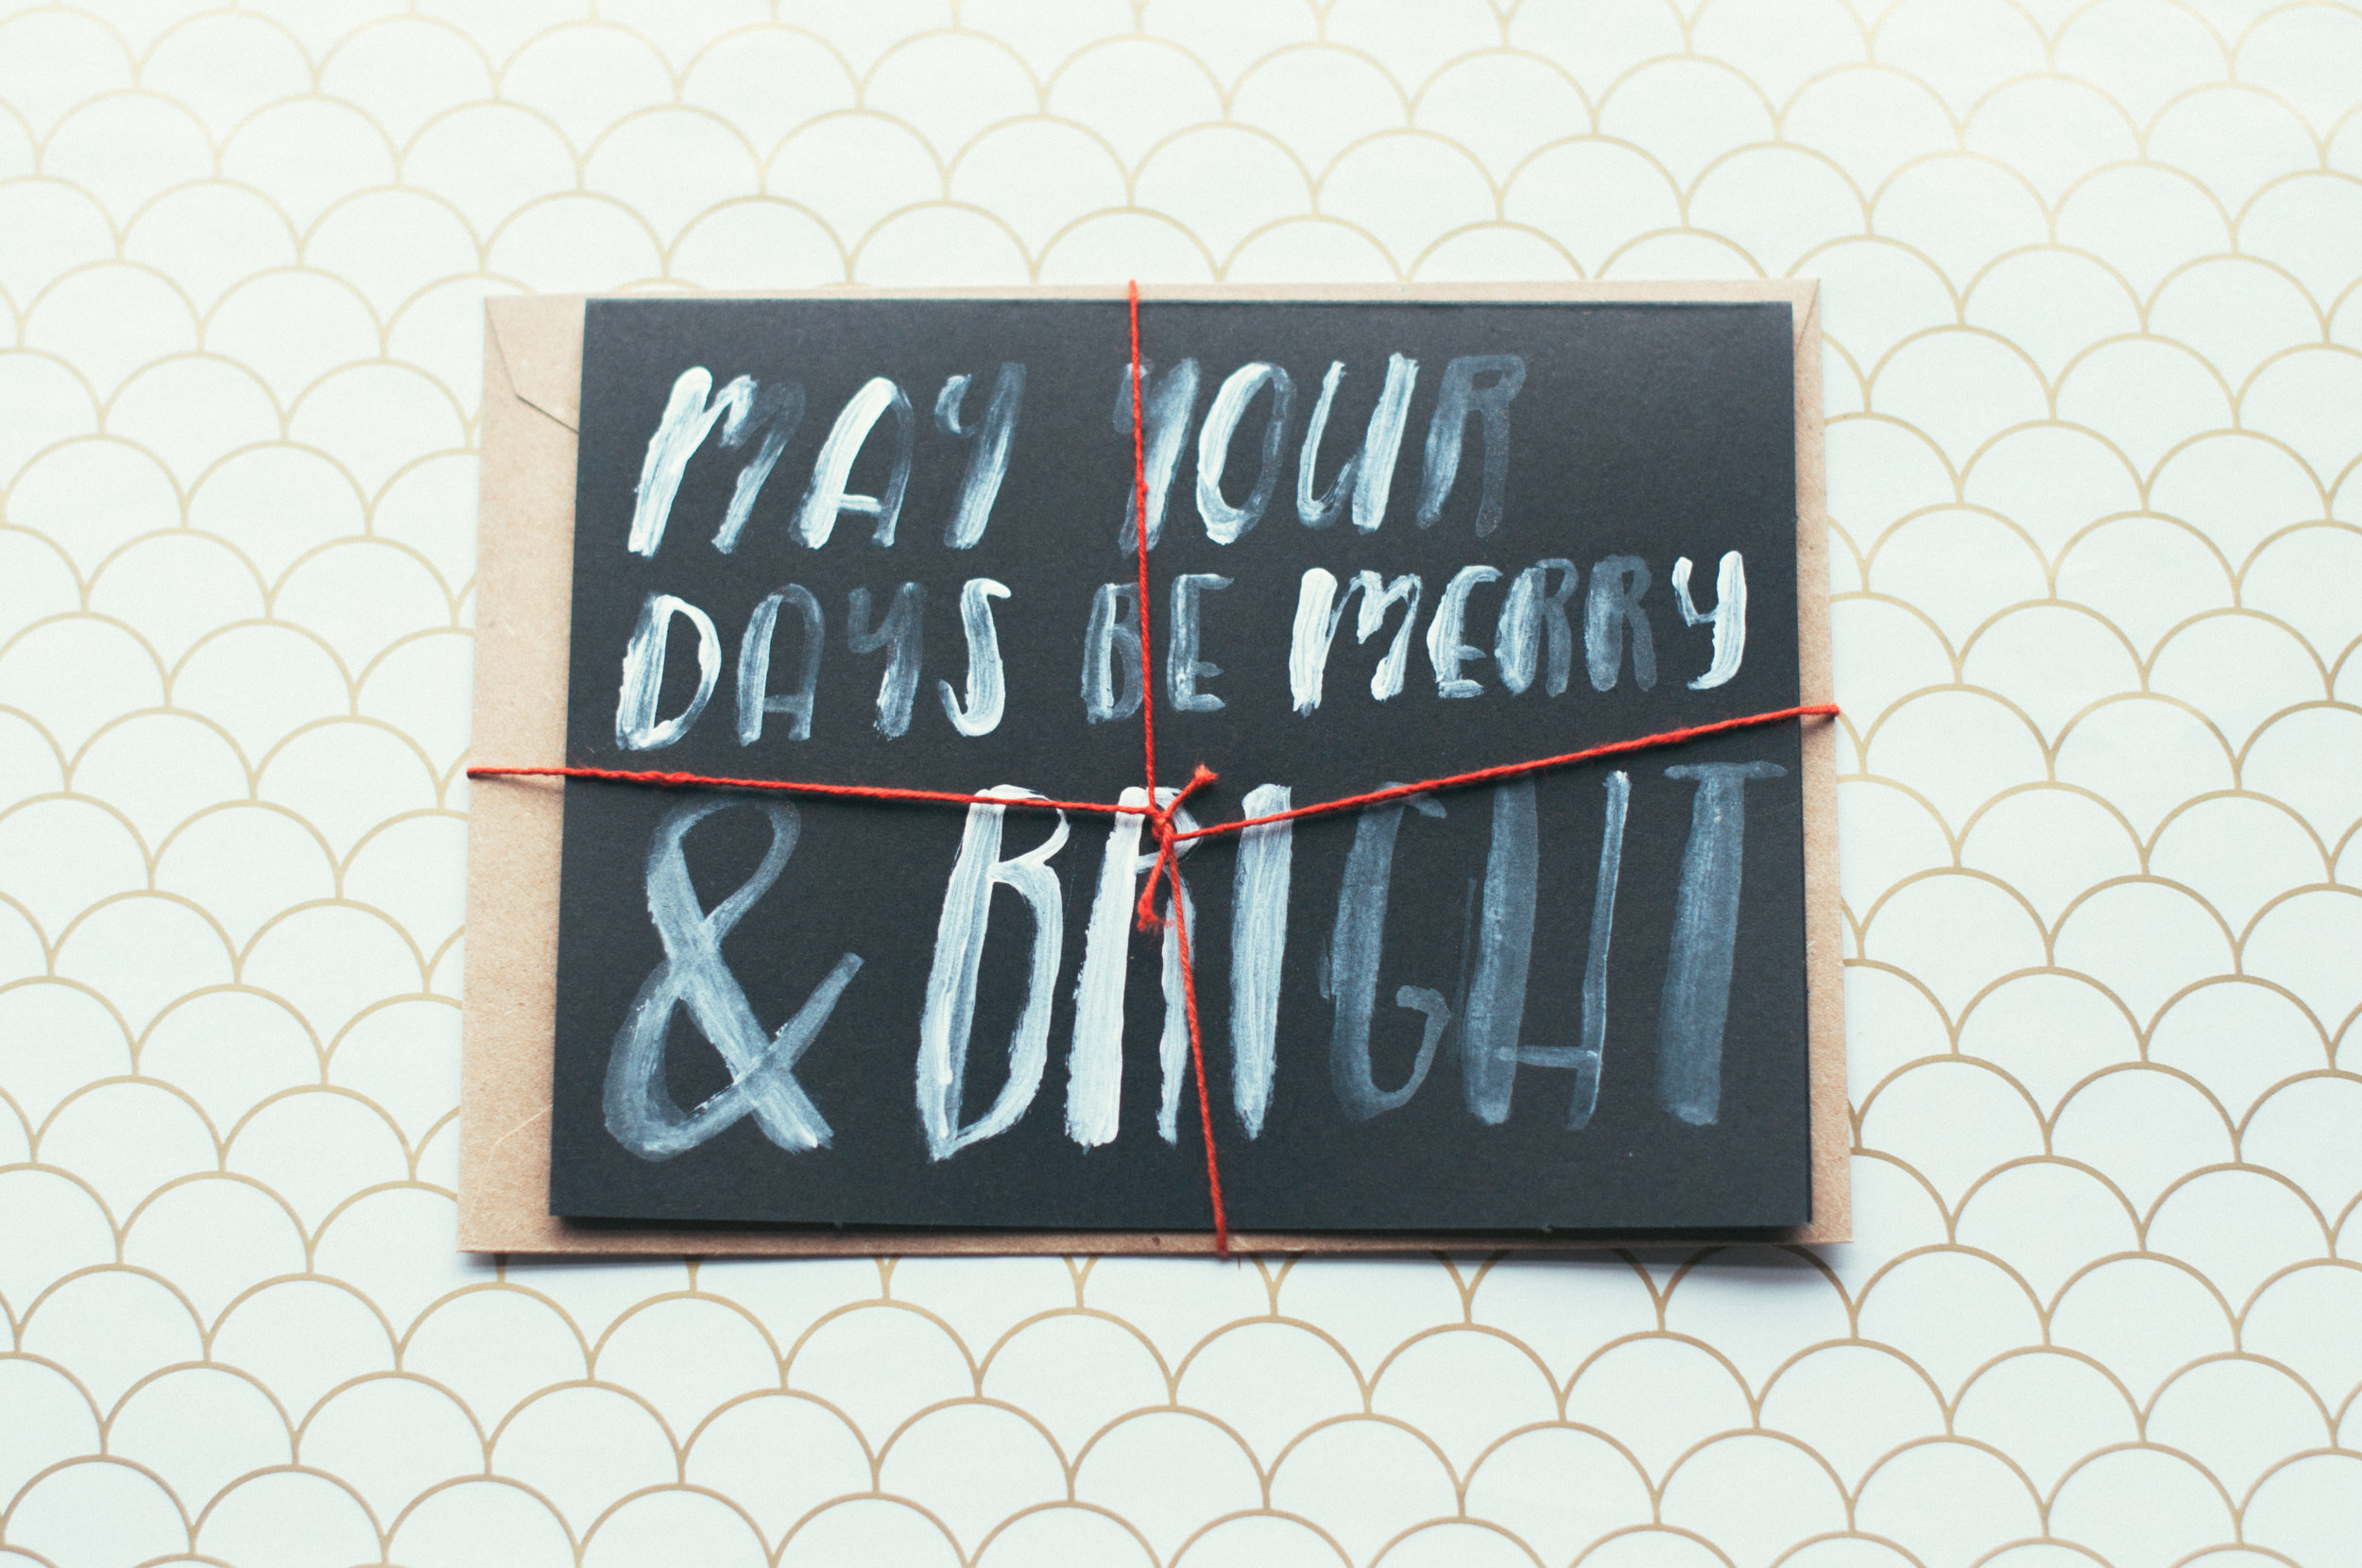 MAY YOUR
DAYS BE MERRY
& BRIGHT